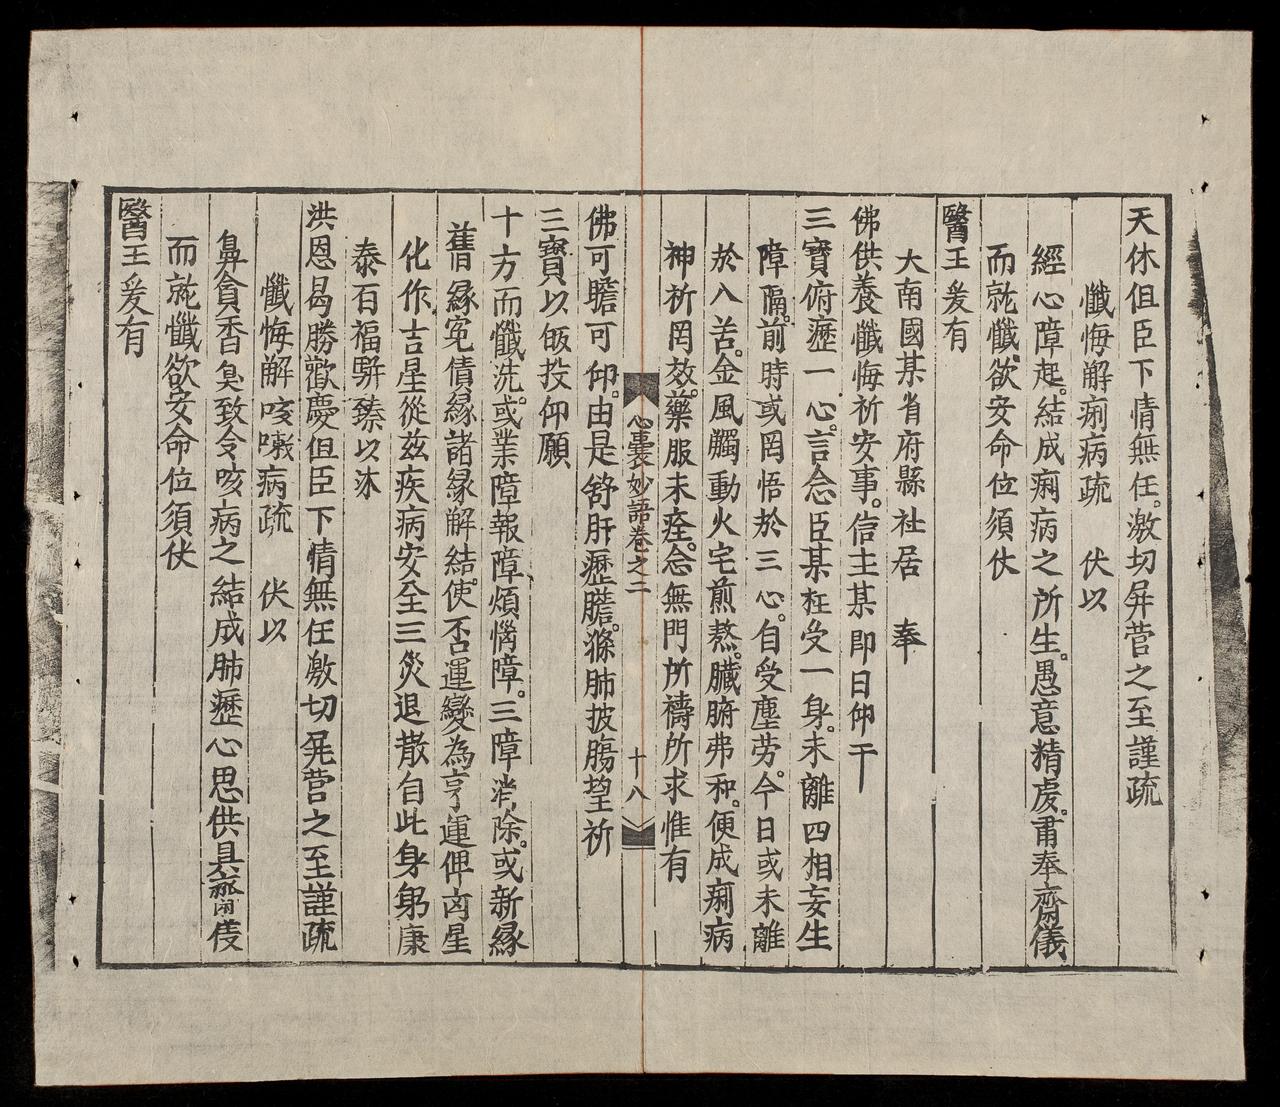 天休但臣下情無任。激切屏营之至謹疏
懺悔解痢病疏　伏以
經心障起。結成痢病之所生。愚意精虔。肅奉齋儀
而就懺欲安命位須伏
醫王爰有
大南國某省府縣社居　奉
佛供養懺悔祈安事。信主某即日仰干
三寶俯瀝一心。言念臣某在受一身。未離四相妄生
障隔。前時或罔悟於三心。自受塵劳。今日或未離
於八苦。金風觸動火宅煎熬。臓腑弗和。便成痢病
神祈罔效。藥服未痊。念無門所禱所求惟有
心囊妙語卷之二　十八
佛可瞻可仰。由是舒肝瀝膽。滌肺披腸望祈
三寶以皈投仰願
十方而懺洗。或業障報障煩惱障。三障消除。或新緣
舊緣寃債緣諸緣解結。使否運變為亨運俾凶星
化作吉星從兹疾病安全三災退散自此身躬康
泰百福駢臻以沐
洪恩曷勝歡慶但臣下情無任激切屏营之至謹疏
懺悔解咳嗽病疏　伏以
鼻貪香臭致令咳病之結成肺瀝心思供具齋虔
而就懺欲安命位須伏
醫王爰有